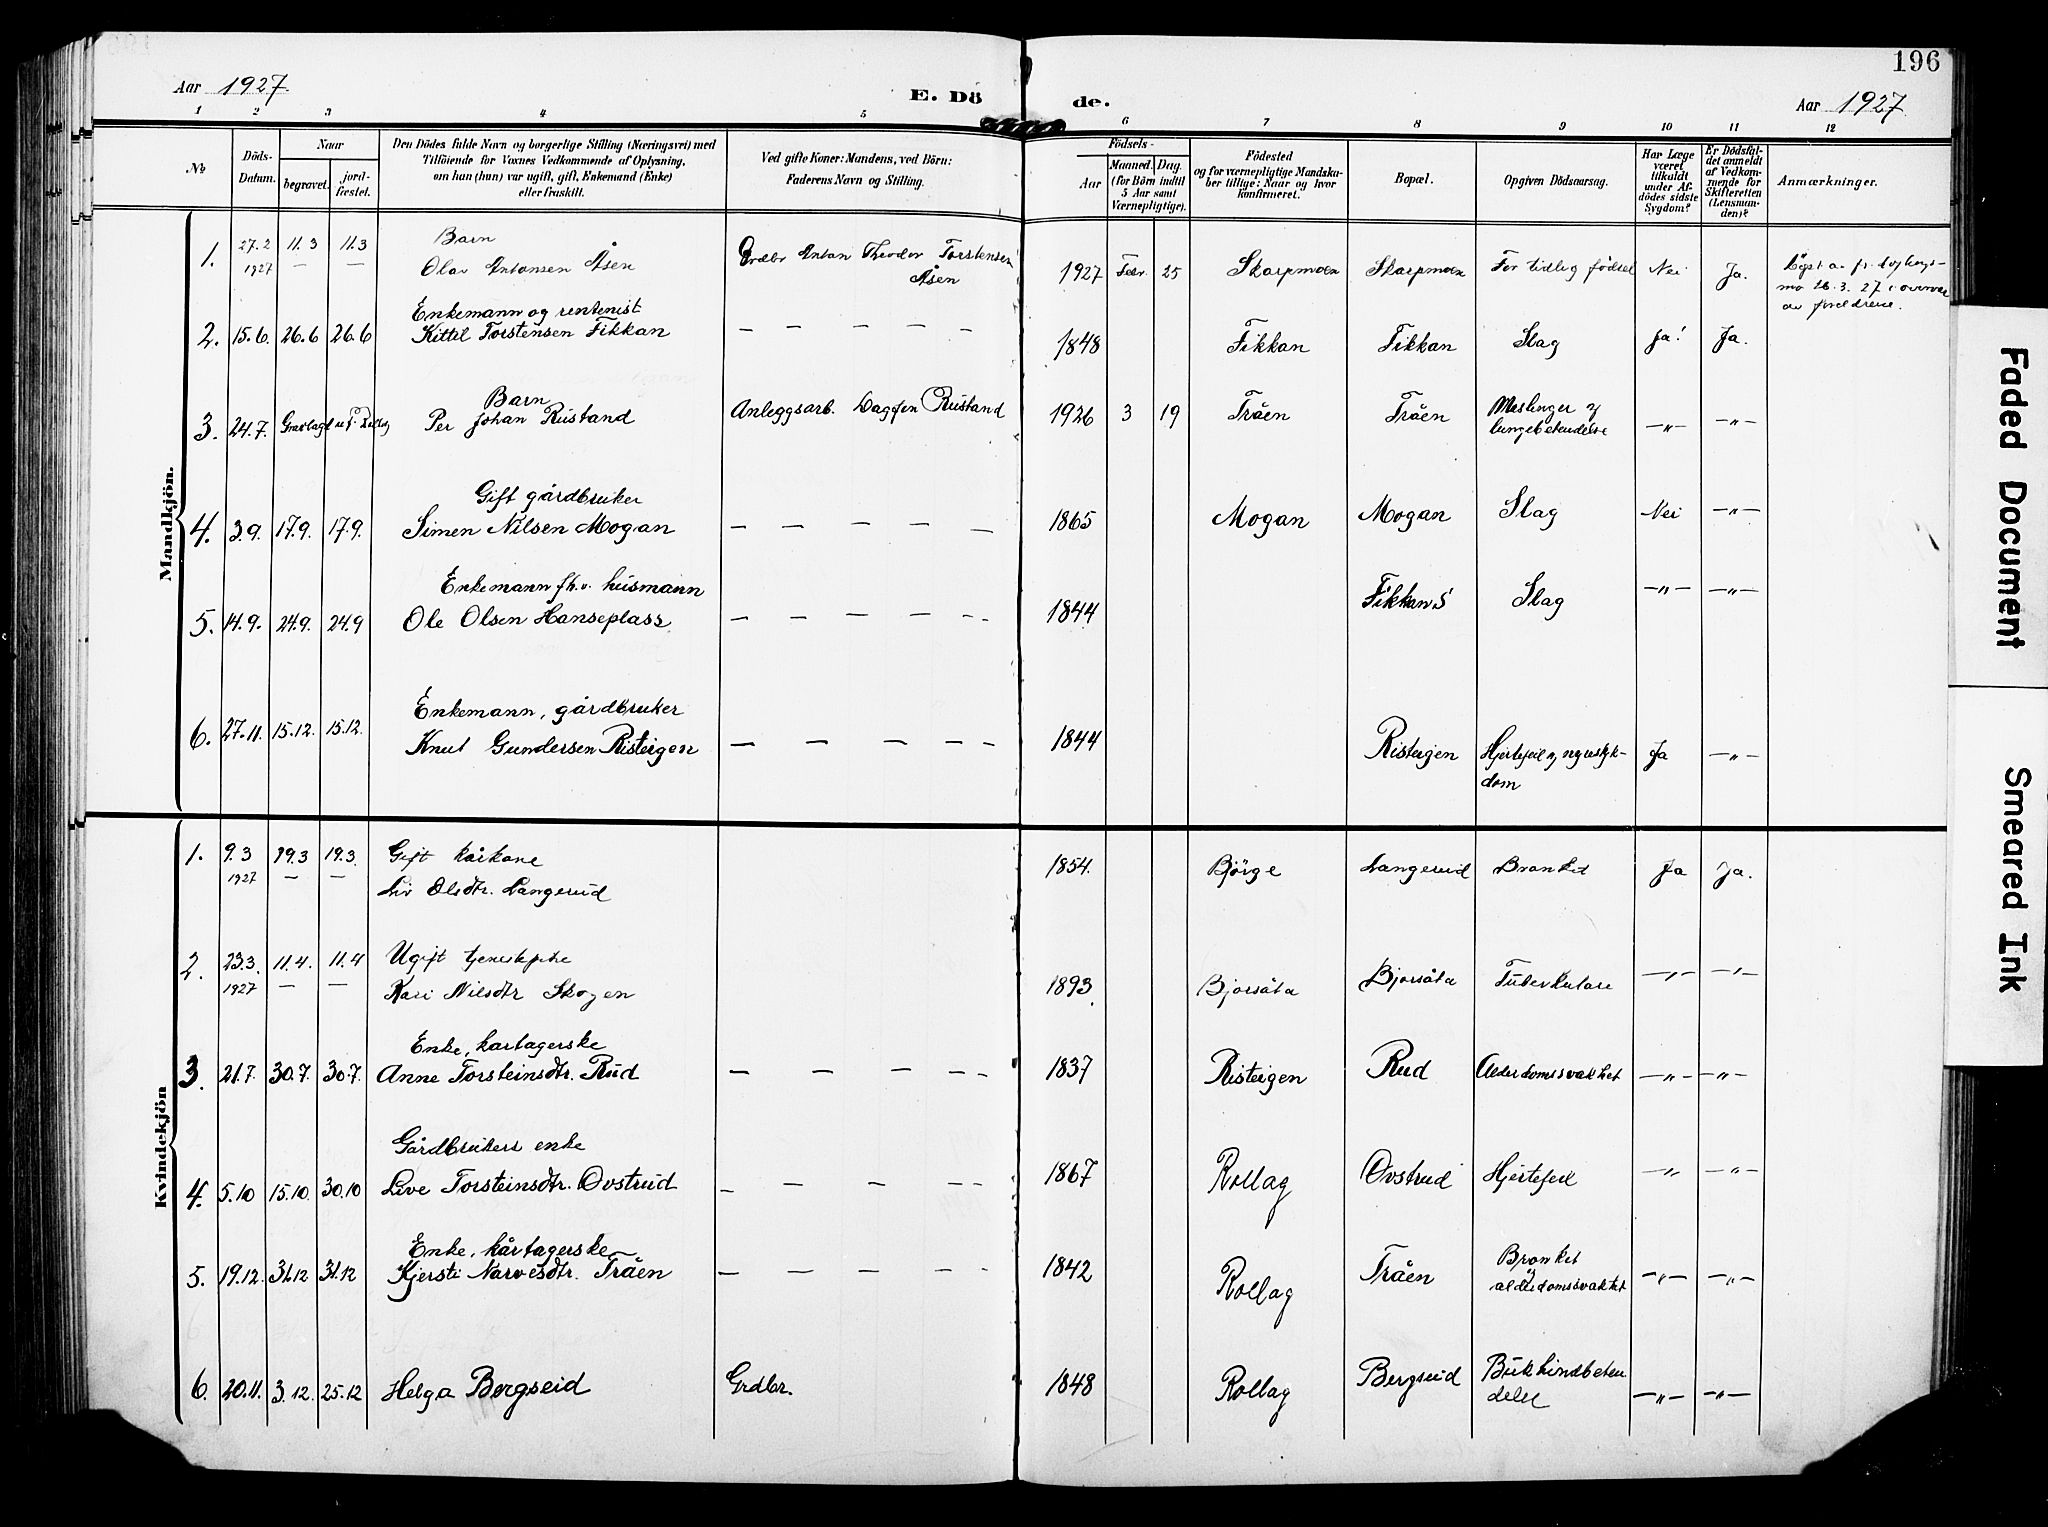 196
Aar 1927.
E. Dö de.
Aar 1927.
1 2 3 4 5 6 7 8 9 10 11 12
No
Döds-
Datum.
Naar
begravet.
jord-
fæstet.
Den Dödes fulde Navn og borgerlige Stilling (Næringsvei) med
Tilföiende for Voxnes Vedkommende af Oplysning,
om han (hun) var ugift, gift, Enkemand (Enke)
eller fraskilt.
Ved gifte Koner: Mandens, ved Börn:
Faderens Navn og Stilling.
Födsels-
Aar
Maaned. Dag.
(for Börn indtil
5 Aar samt
Værnepligtige).
Födested
og for værnepligtige Mandska-
ber tillige: Naar og hvor
konfirmeret.
Bopæl.
Opgiven Dödsaarsag.
Har Læge
været
tilkaldt
under Af-
dödes sidste
Sygdom?
Er Dödsfal-
det anmeldt
af Vedkom-
mende for
Skifteretten
(Lensman-
den)?
Anmærkninger.
Mandkjön.
1. 27.2 1927 11.3 — 11.3 —
Barn
Olav Antonsen Åsen
Grdbr Anton Theodor Torstensen
Åsen
1927 Febr. 25 Skarpmoen Skarpmoen For tidlig födsel Nei Ja.
26.3.27 i overvær
av foreldrene.
Enkemann og rentenist
2. 15.6. 26.6 26.6 Kittil Torstensen Fikkan — — — — — 1848 Fikkan Fikkan Slag Ja! Ja.
Barn
3. 24.7. Gravlagt Per Johan Rustand Anleggsarb. Dagfin Rustand 1926 3 19 Tråen Tråen Meslinger og
lungebetendelse —〃— —〃—
Gift gårdbruker
4. 3.9. 17.9. 17.9. Simen Nilsen Mogan — — — — — 1865 Mogan Mogan Slag Nei —〃—
Enkemann fh.v. husmann
5. 14.9. 24.9. 24.9 Ole Olsen Hanseplass — — — — - - 1844 Fikkan S Slag —〃— —〃—
Enkemann, gårdbruker
6. 27.11. 15.12. 15.12. Knut Gundersen Risteigen — — — — - 1844 Risteigen Hjertefeil og nyresyk-
dom Ja —〃—
Kvindekjön
1. 9.3 1927 19.3 — 19.3. —
Gift kårkone
Liv Olsdtr. Langerud 1854. Björge Langerud Bronket Ja Ja.
2. 23.3. 1927 11.4. — 11.4 —
Ugift tjenestepike
Kari Nilsdtr Skogen 1893. Bjorsåta Bjorsåta Tuberkulose —〃— —〃—
Enke, kartagerske
3. 21.7. 30.7. 30.7. Anne Torsteinsdtr. Rud — — — — - - 1837 Risteigen Rud Alderdomssvakhet —〃— —〃—
Gårdbrukers enke
4. 5.10 15.10. 30.10 Live Torsteinsdtr. Ovstrud — — — — - 1867 Rollag Ovstrud Hjertefeil —〃— —〃—
Enke, kårtagerske
5. 19.12. 31.12 31.12 Kjersti Narvesdtr. Tråen — — — — - - 1842 Rollag Tråen Bronket
og
alderdomssvakhet —〃— —〃—
6. 20.11. 3.12. 25.12 Helga Bergseid Grdbr. 1848 Rollag Bergseid Bukhindbeten
delse —〃— —〃—
Faded Document
Smeared Ink